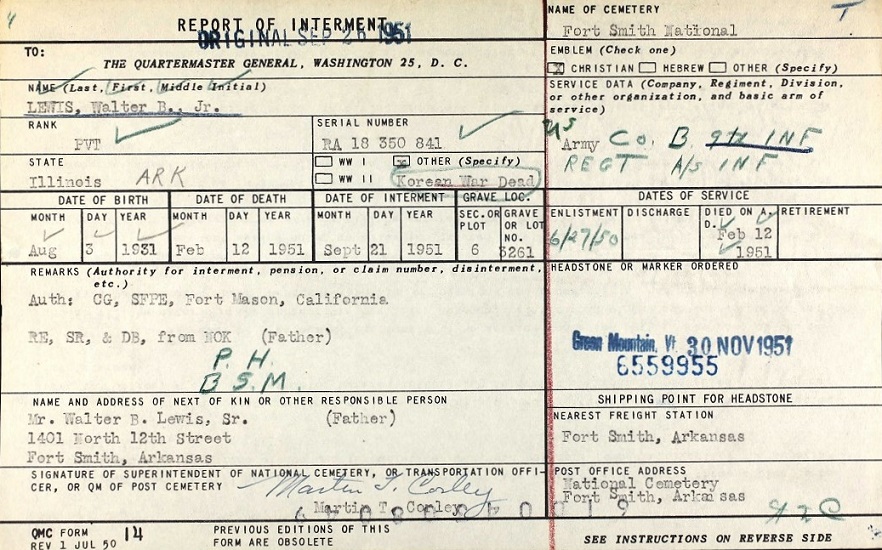 REPORT OF INTERMENT
ORIGINAL SEP 26 1951
TO:
THE QUARTERMASTER GENERAL, WASHINGTON 25, D. C.
NAME (Last, First, Middle Initial)
LEWIS, Walter B., Jr.
RANK
PVT
SERIAL NUMBER
RA 18 350 841
STATE
Illinois ARK
WW I
WW II
OTHER (Specify)
Korean War Dead
DATE OF BIRTH
MONTH DAY YEAR
Aug 3 1931
DATE OF DEATH
MONTH DAY YEAR
Feb 12 1951
DATE OF INTERMENT
MONTH DAY YEAR
Sept 21 1951
GRAVE LOC.
SEC. OR PLOT
6
GRAVE OR LOT NO.
5261
REMARKS (Authority for interment, pension, or claim number, disinterment, etc.)
Auth: CG, SFPE, Fort Mason, California
RE, SR, & DB, from NOK (Father)
P. H.
B S M.
NAME AND ADDRESS OF NEXT OF KIN OR OTHER RESPONSIBLE PERSON
Mr. Walter B. Lewis, Sr. (Father)
1401 North 12th Street
Fort Smith, Arkansas
SIGNATURE OF SUPERINTENDENT OF NATIONAL CEMETERY, OR TRANSPORTATION OFFI-
CER, OR QM OF POST CEMETERY
Martin T. Corley
Martin T. Corley
QMC FORM 14
REV 1 JUL 50
PREVIOUS EDITIONS OF THIS
FORM ARE OBSOLETE
NAME OF CEMETERY
Fort Smith National
EMBLEM (Check one)
CHRISTIAN HEBREW OTHER (Specify)
SERVICE DATA (Company, Regiment, Division,
or other organization, and basic arm of
service)
US Army Co. B 9th INF
REGT A/S INF
DATES OF SERVICE
ENLISTMENT
6/27/50
DISCHARGE
DIED ON A. D.
Feb 12
1951
RETIREMENT
HEADSTONE OR MARKER ORDERED
Green Mountain, Vt 30 NOV 1951
6559955
SHIPPING POINT FOR HEADSTONE
NEAREST FREIGHT STATION
Fort Smith, Arkansas
POST OFFICE ADDRESS
National Cemetery
Fort Smith, Arkansas
SEE INSTRUCTIONS ON REVERSE SIDE